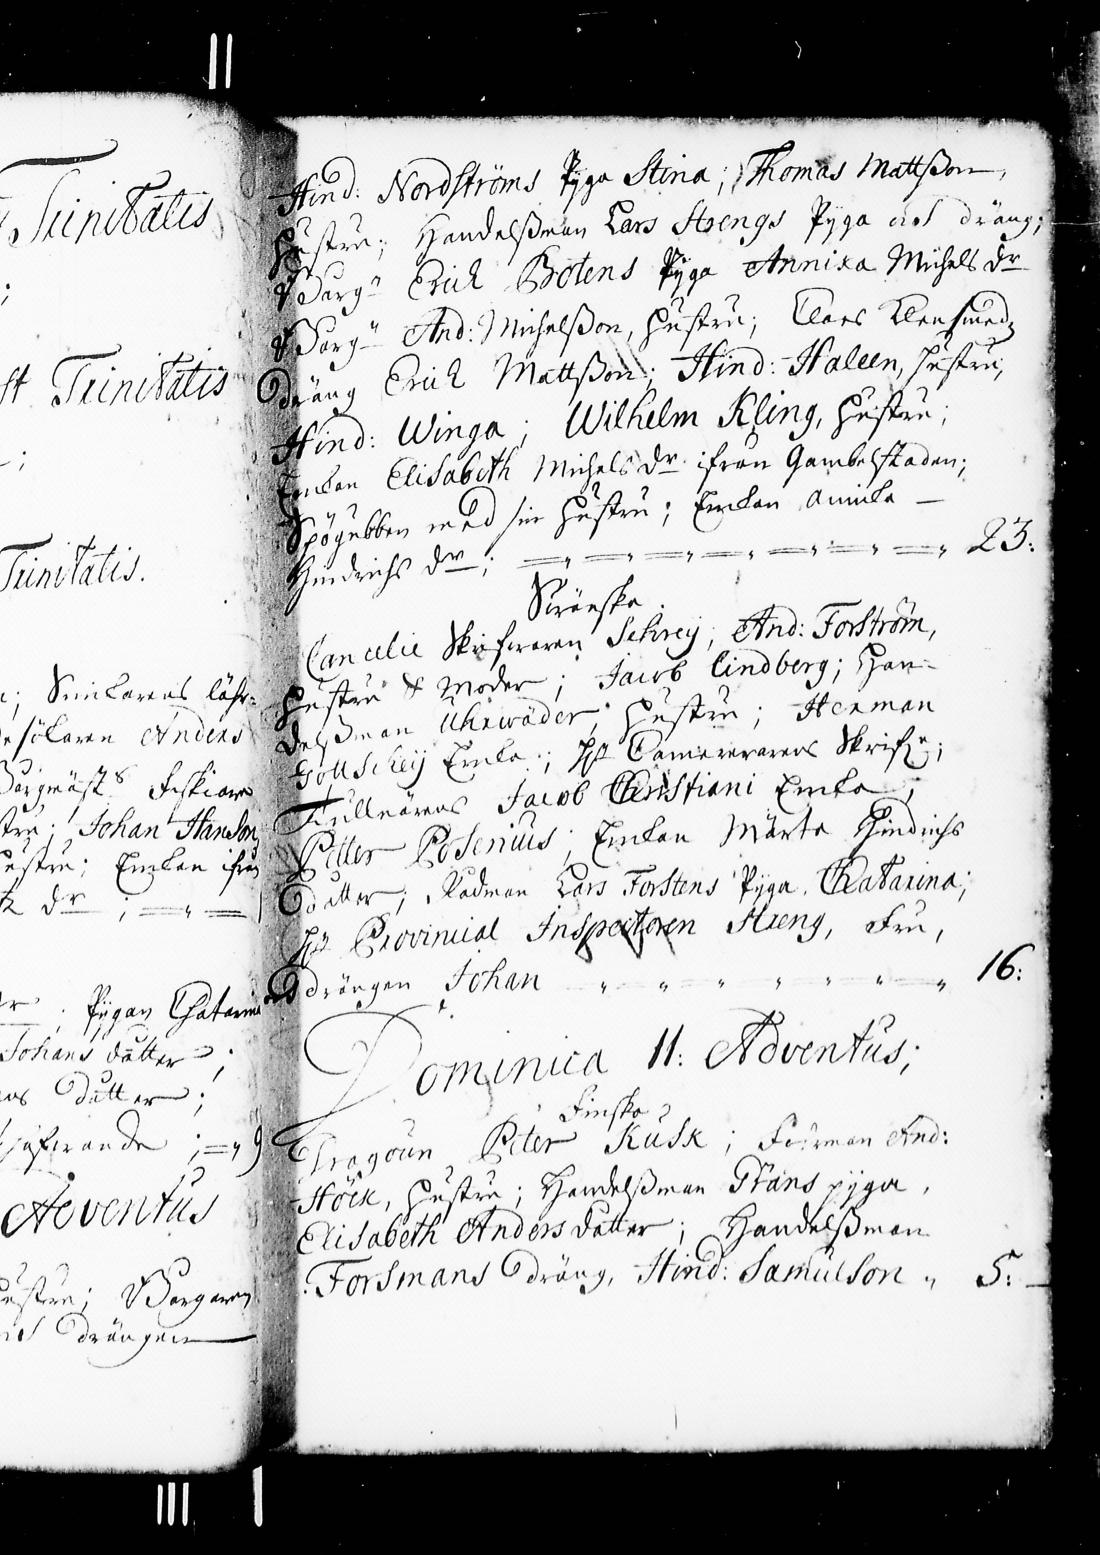 Trinitatis
st Trinitatis
Trinitatis.
Anders
Johan Hanson
hustru; Enkan ifrån
dr ;
Pygan Chatarina
Johans dåtter ;
dåtter ;
; 9
Adventus
hustru; Borgaren
drängen
Hind: Nordströms Pyga Stina; Thomas Mattßon,
hustru; Handelßman Lars Strengs Pyga och dräng;
Borg: Erich Botens Pyga Annika Michels dr
Borg: And: Michelßon, hustru; Claes Klensmedz
dräng Erich Mattßon; Hind: Haleen, hustru;
Hind: Winga; Wilhelm Kling, hustru;
Enkan Elisabeth Michels dr ifrån Gambelstaden;
Spögubben med sin hustru; Enkan Annika
Hindrichs dr ; 23:
Swänska.
Cancelie Skrifwaren Schrey; And: Forström,
hustru & Moder; Jacob Lindberg; Han-
delßman Uhrwäder, hustru; Herman
Gottschey Enka; Hr Camererarens Skrif:;
Tullnärens Jacob Christiani Enka;
Petter Polenius; Enkan Märta Hindrichs
dåtter; Rådman Lars Forstens Pyga Chatarina;
Hr Provincial Inspectoren Streng, Fru,
drängen Johan 16:
Dominica II: Adventus;
Finska
Dragoun Peter Kusk; Förman And:
Höck, hustru; Handelßman Tråns pyga,
Elisabeth Anders dåtter; Handelßman
Forsmans dräng, Hind: Samulson 5: